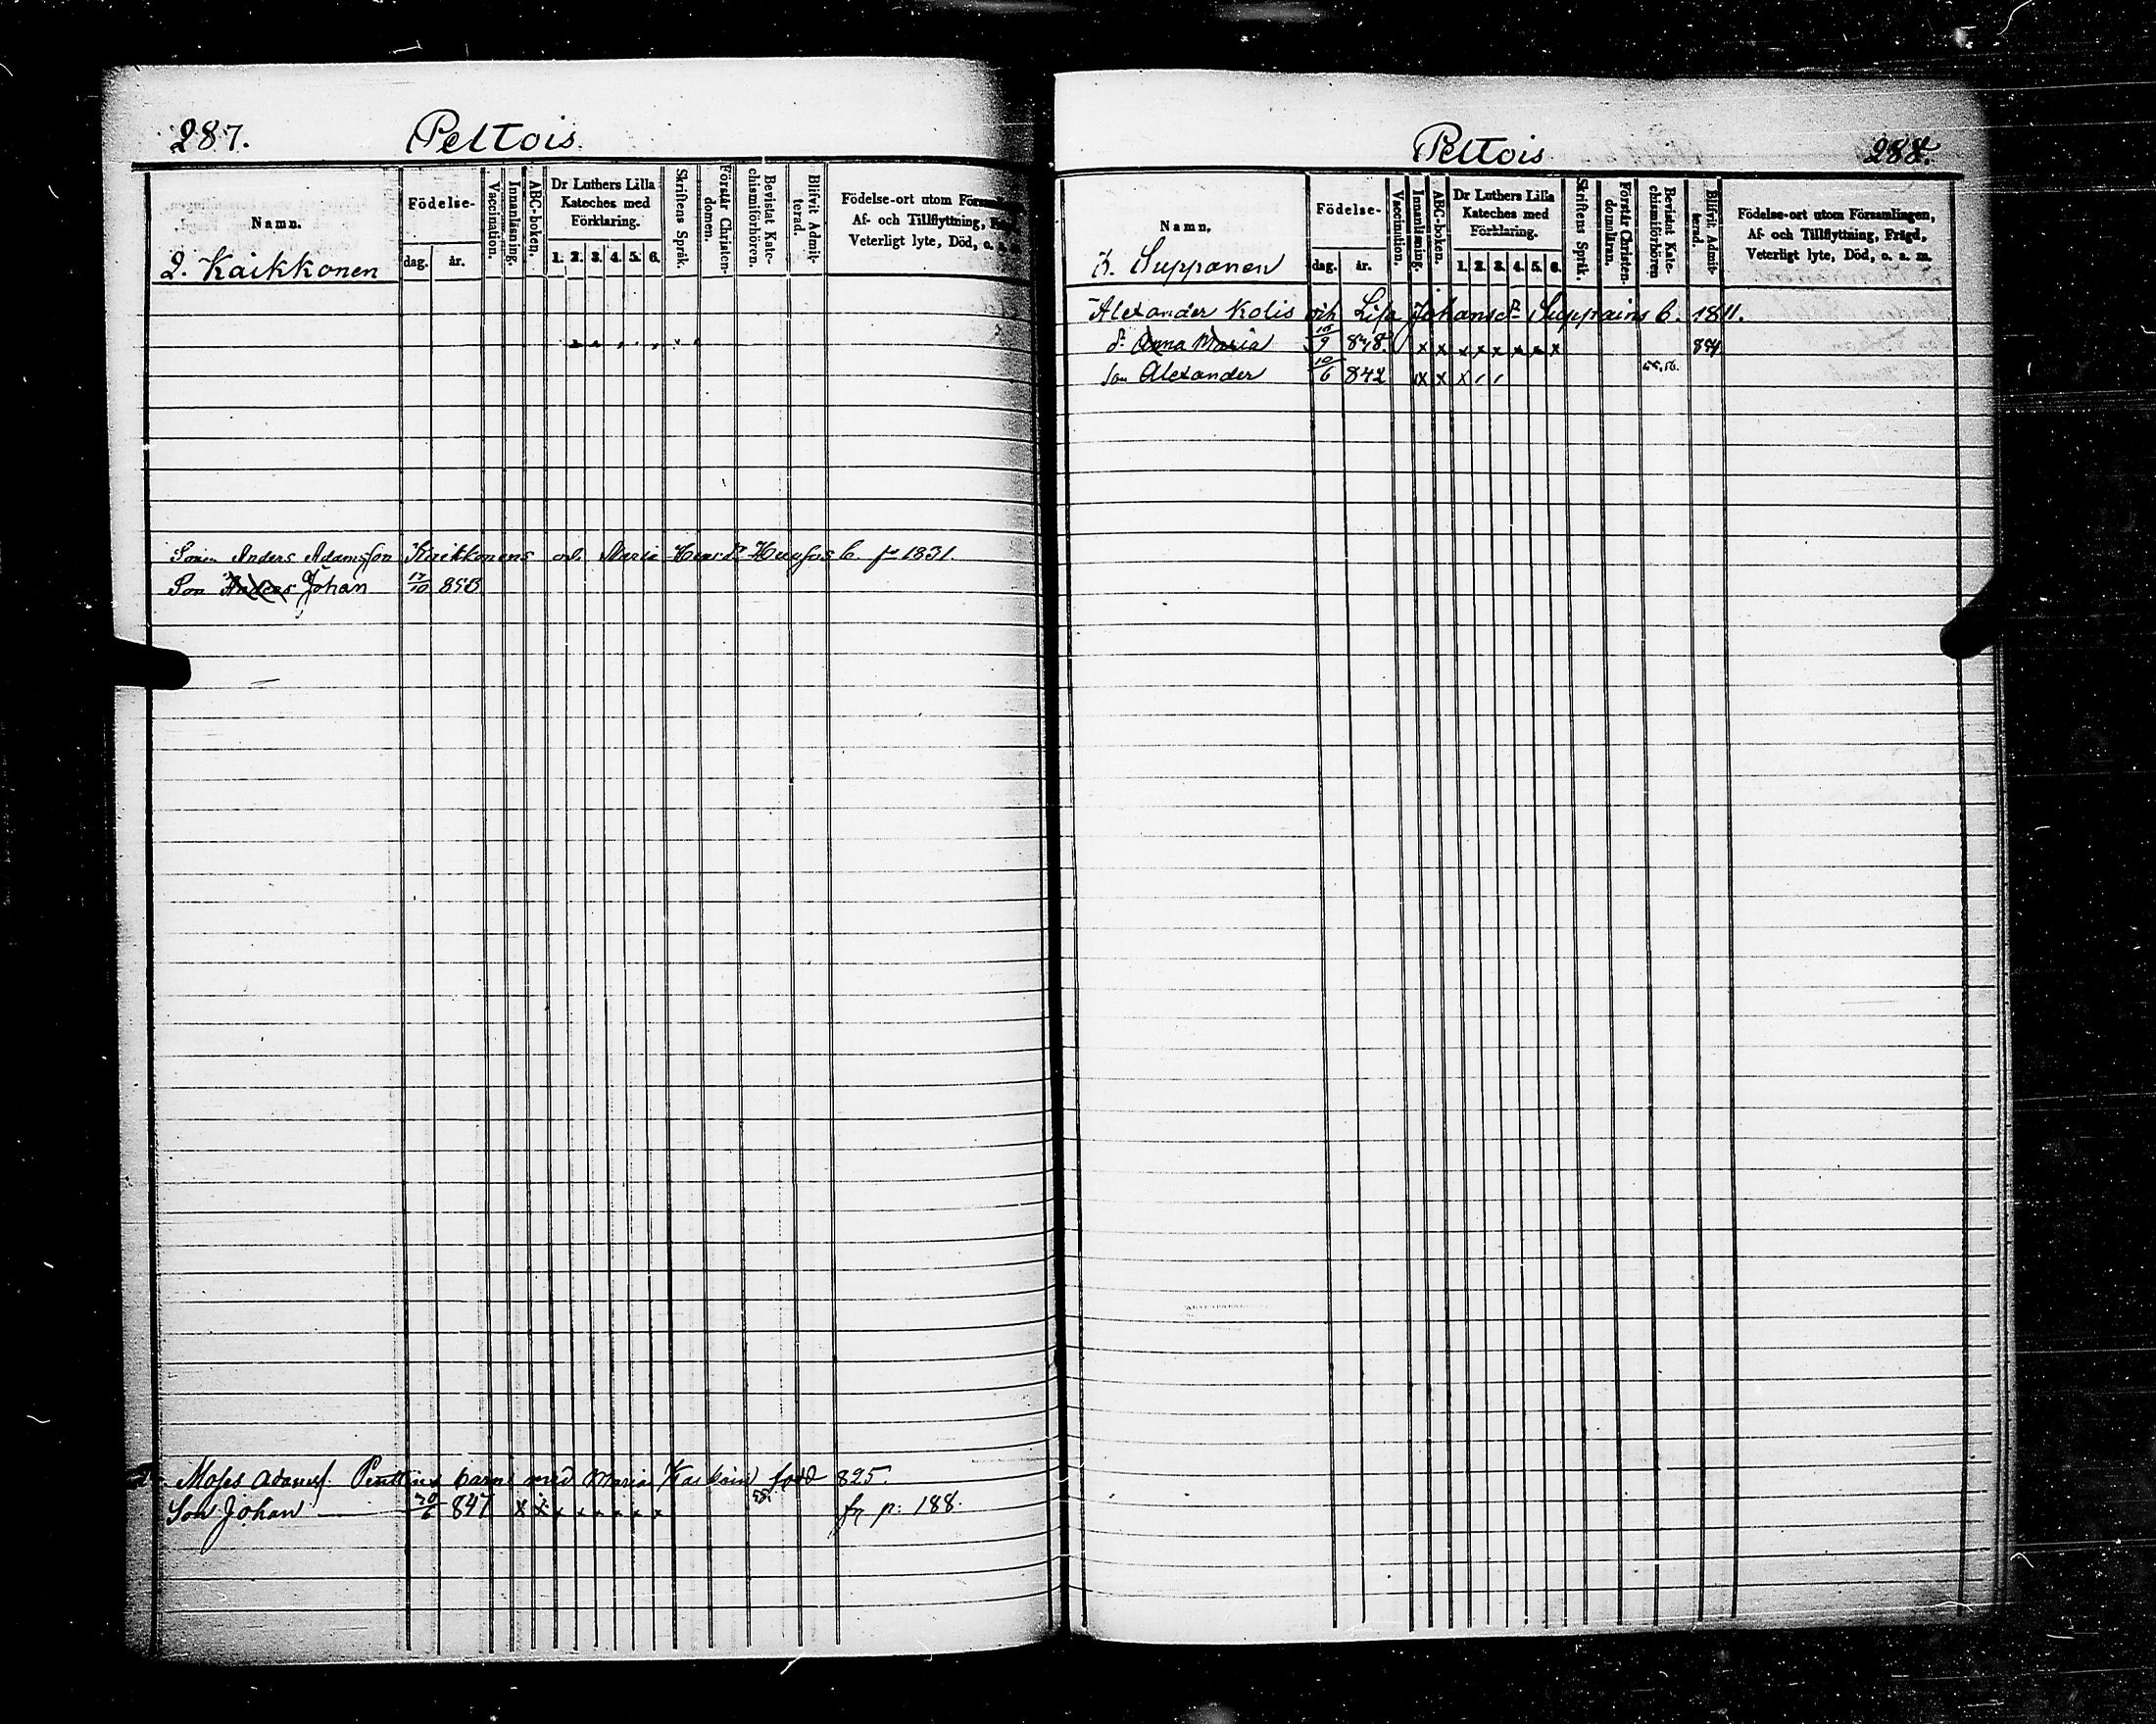 287. Peltois.
Namn.
Födelse-
dag. år.
Vaccination.
Innanläsning.
ABC-boken.
Dr Luthers Lilla Kateches med Förklaring.
1. 2. 3. 4. 5. 6.
Skriftens Språk.
Förstår Christen-domen.
Bevistat Kate-chismiförhören.
Blifvit Admit-terad.
Födelse-ort utom
Af- och Tillflyttning,
Veterligt lyte, Död, o. s.
2. Kaikkonen
Anders Adamsson Kaikkonens Maria 1831.
Son Anders Johan 17/10 850
Moses Adamss. barn med Maria född 825.
Son Johan 847 x x x x x x x x p: 188.
Peltois 288.
Namn.
Födelse-
dag. år.
Vaccination.
Innanläsning.
ABC-boken.
Dr Luthers Lilla Kateches med Förklaring.
1. 2. 3. 4. 5. 6.
Skriftens Språk.
Förstår Christen-domsläran.
Bevistat Kate-chismiförhören
Blifvit Admit-terad.
Födelse-ort utom Församlingen,
Af- och Tillflyttning, Frägd,
Veterligt lyte, Död, o. s. m.
3. Suppanen
Alexander Kolis och Lisa Johansdr Suppains b. 1811.
dr Anna Maria 15/9 838. x x x x x x x x 854
son Alexander 10/6 842 x x x / / 55, 56.